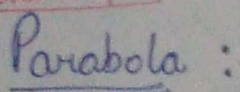 Parabola :